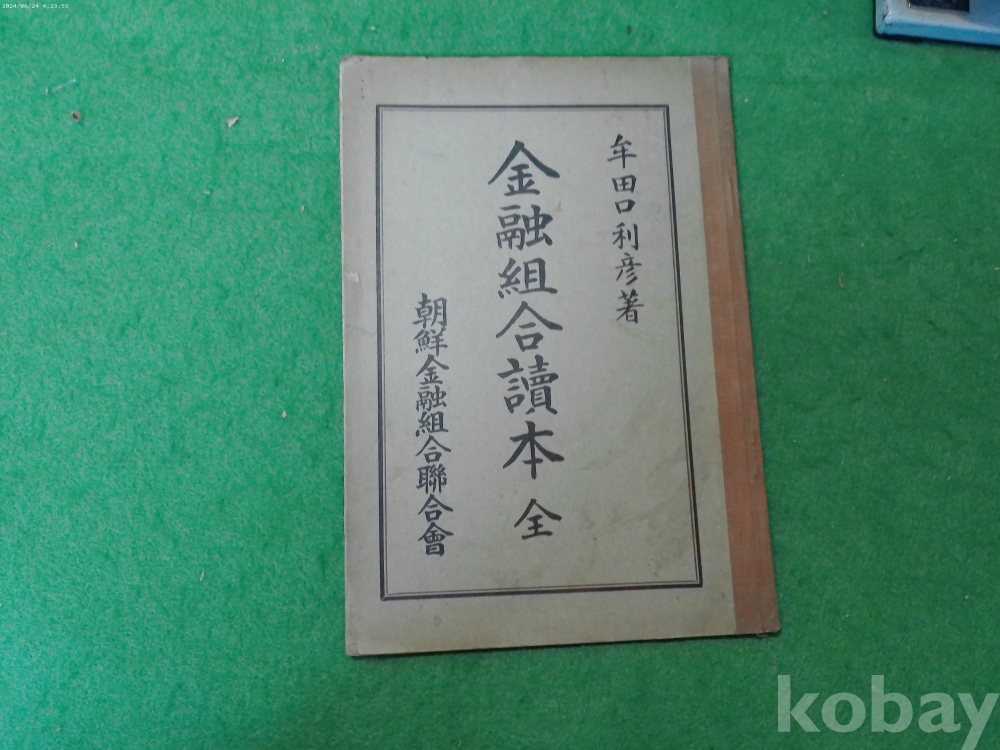 2024/06/24 4:23:55
牟田口利彦著
金融組合讀本 全
朝鮮金融組合聯合會
kobay